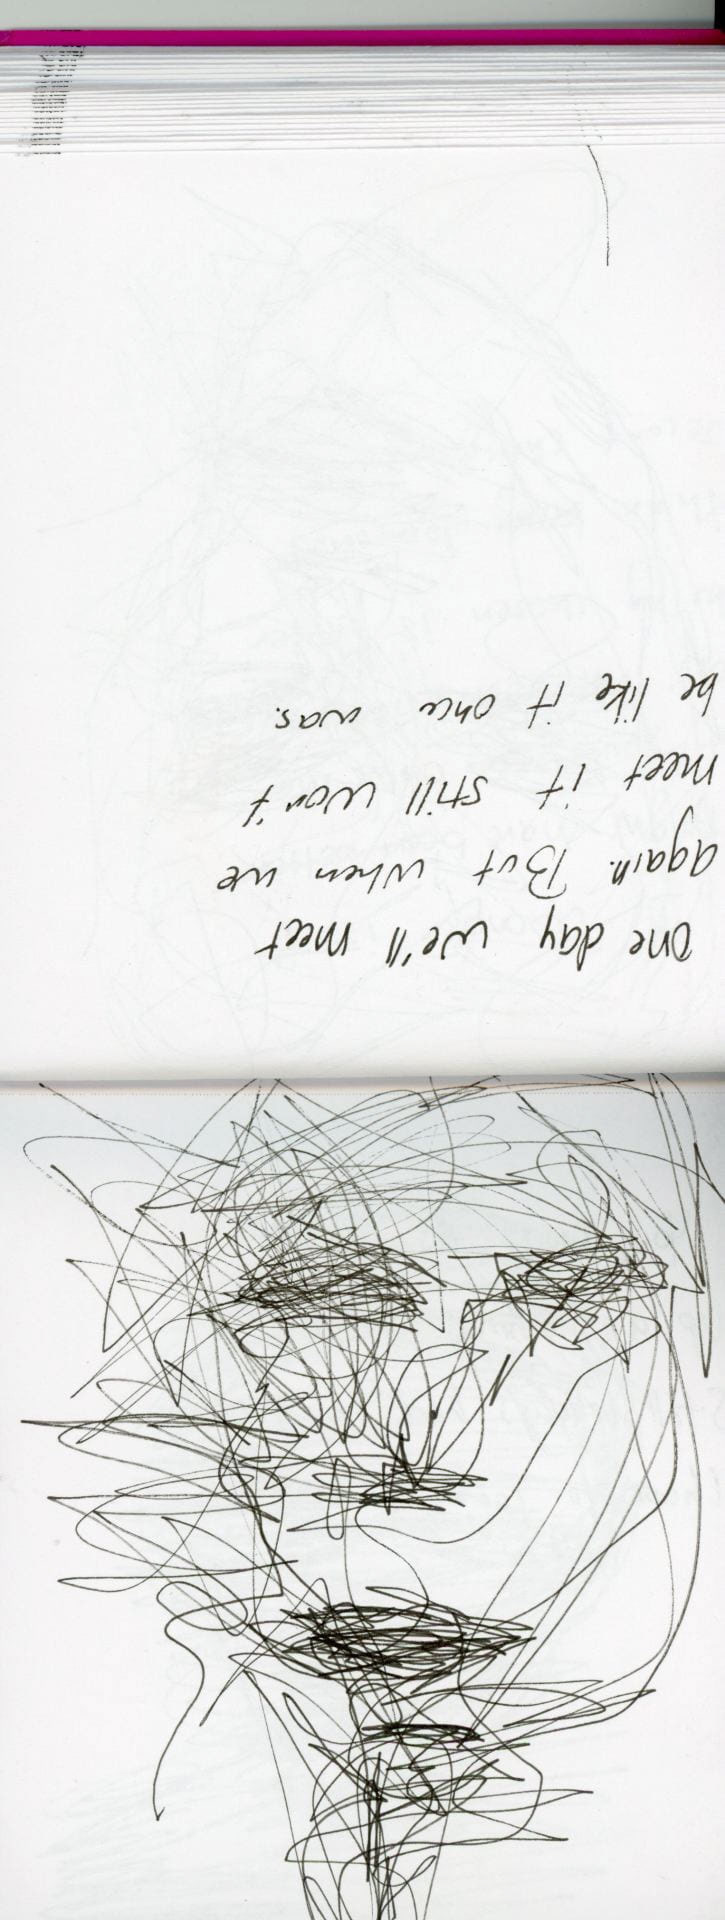 one day we'll meet
again. But when we
meet it still won't
be like it once was.